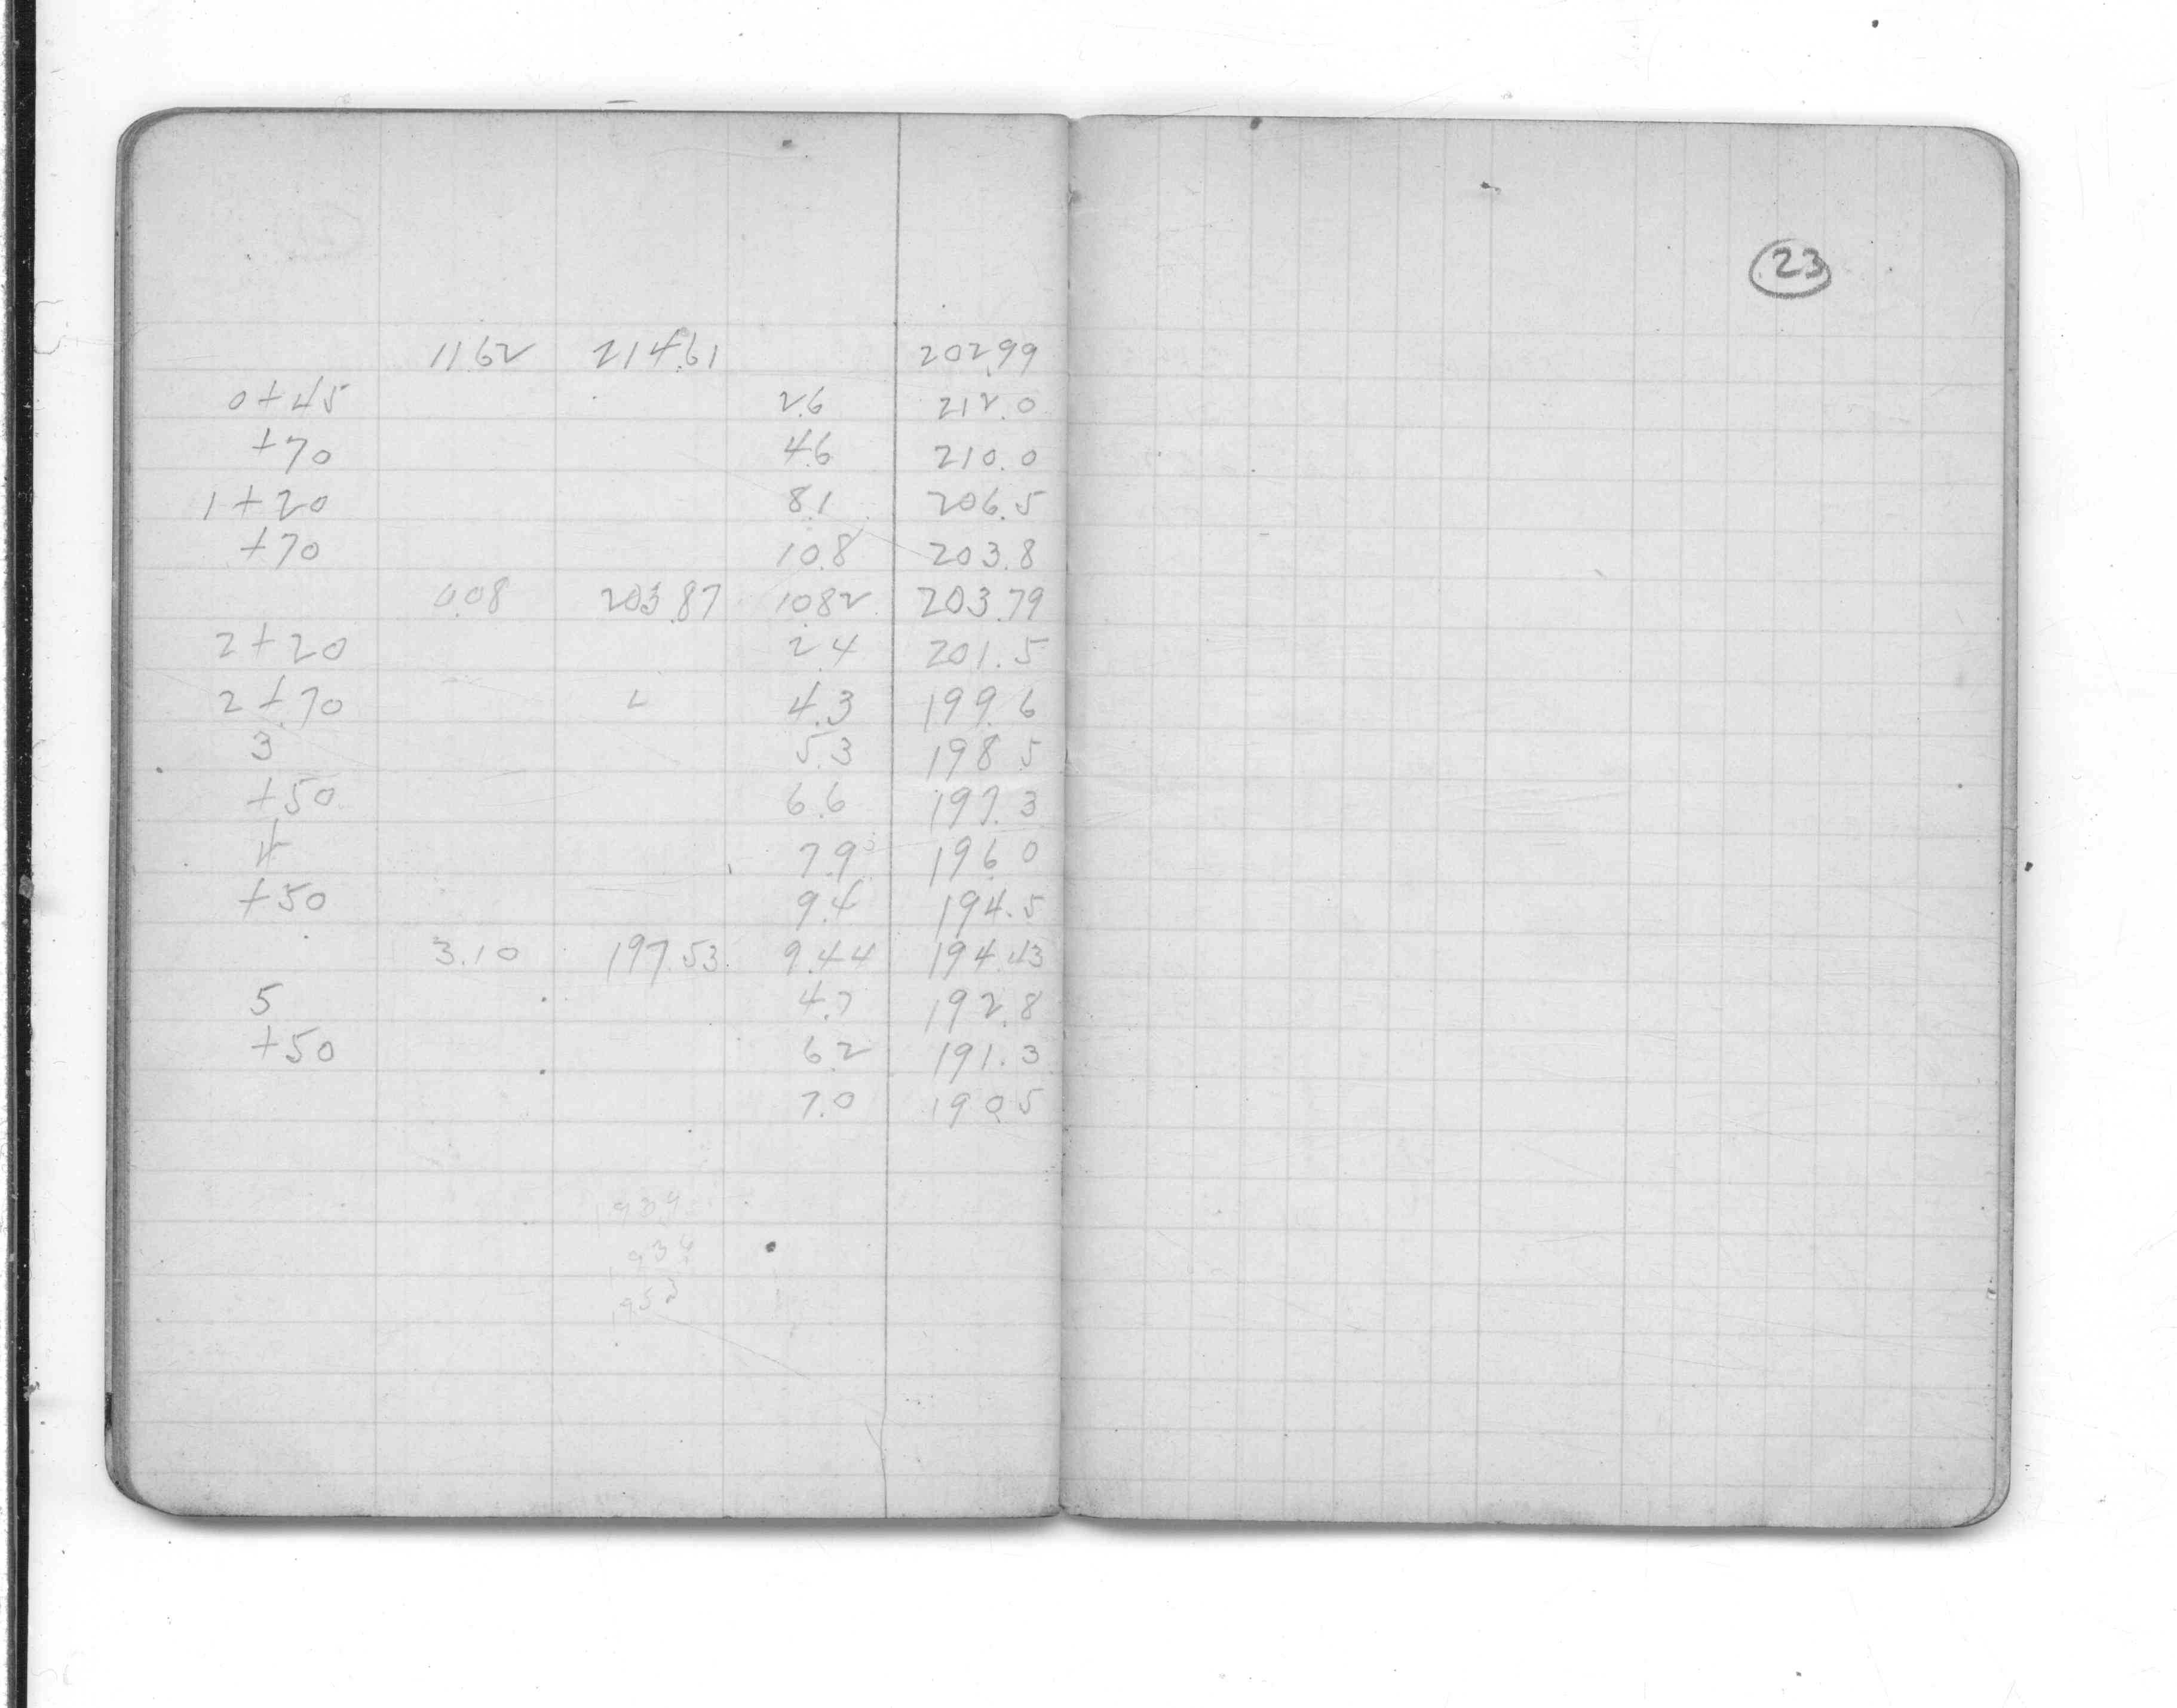 11.62 214.61 202.99
0+45 2.6 212.0
+70 4.6 210.0
1+20 8.1 206.5
+70 10.8 203.8
0.08 203.87 10.82 203.79
2+20 2.4 201.5
2+70 4.3 199.6
3 5.3 198.5
+50 6.6 197.3
4 7.9 196.0
+50 9.4 194.5
3.10 197.53 9.44 194.43
5 4.7 192.8
+50 6.2 191.3
7.0 190.5
23